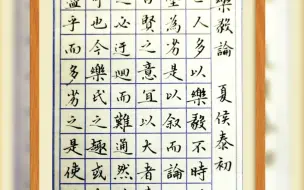 樂毅論 夏侯泰初
人多以樂毅不時
為劣是以叙而論
賢之意宜以大者
之必迂迴而難通然
可也今樂氏之趣或
盡乎而多劣之是使